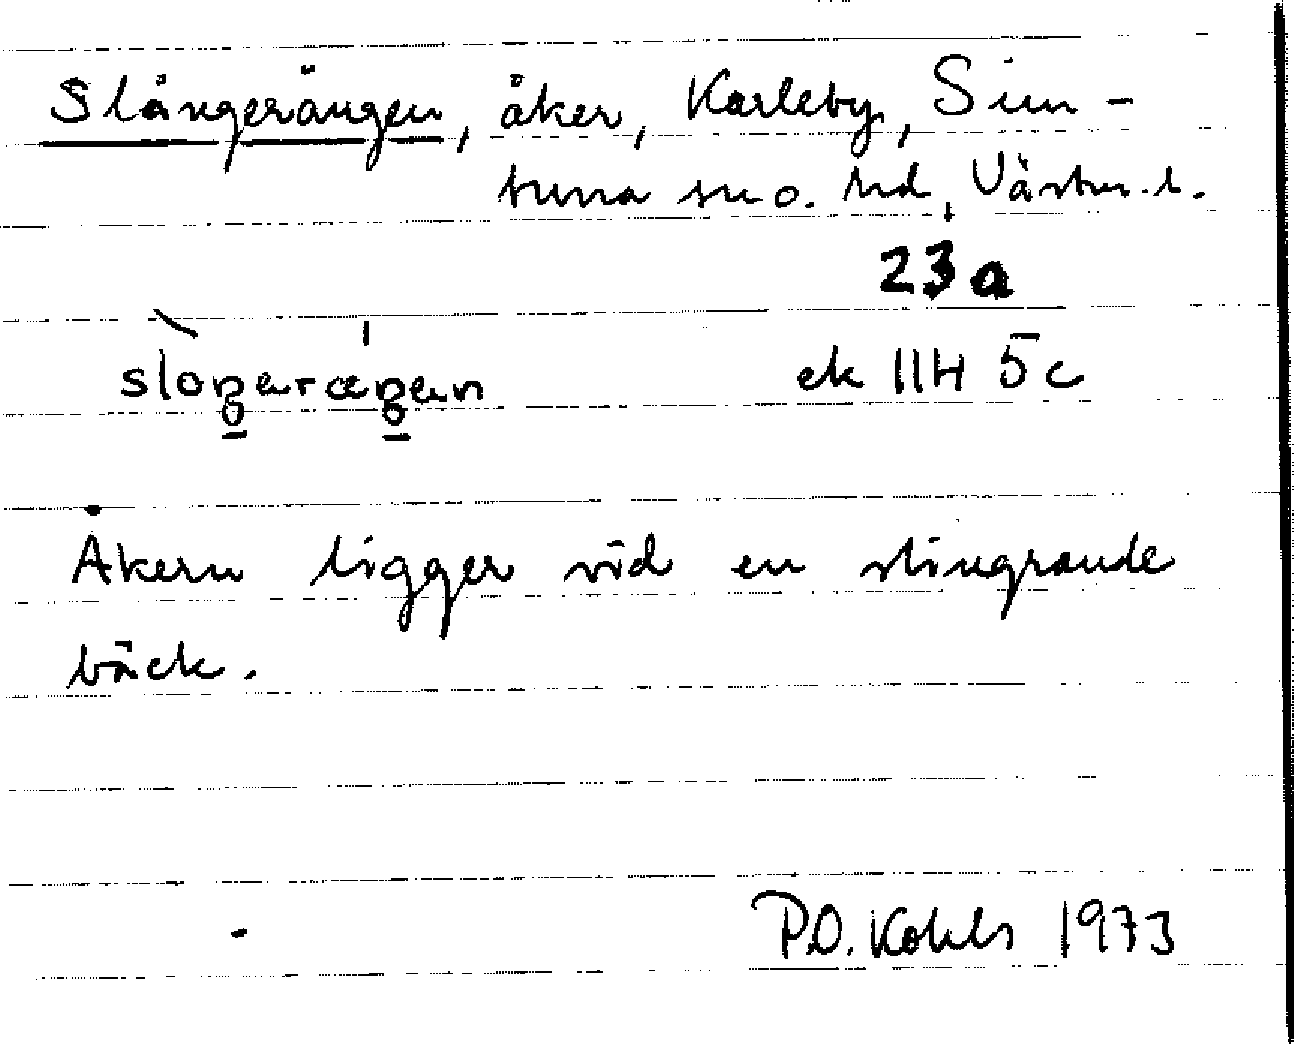 Slångerängen, åker, Karleby, Sim-
tuna sn o. hd, Västm. l.
23a
sloŋeræŋen
ek 11H 5c
Åkern ligger vid en slingrande
bäck.
P.O. Kohls 1973